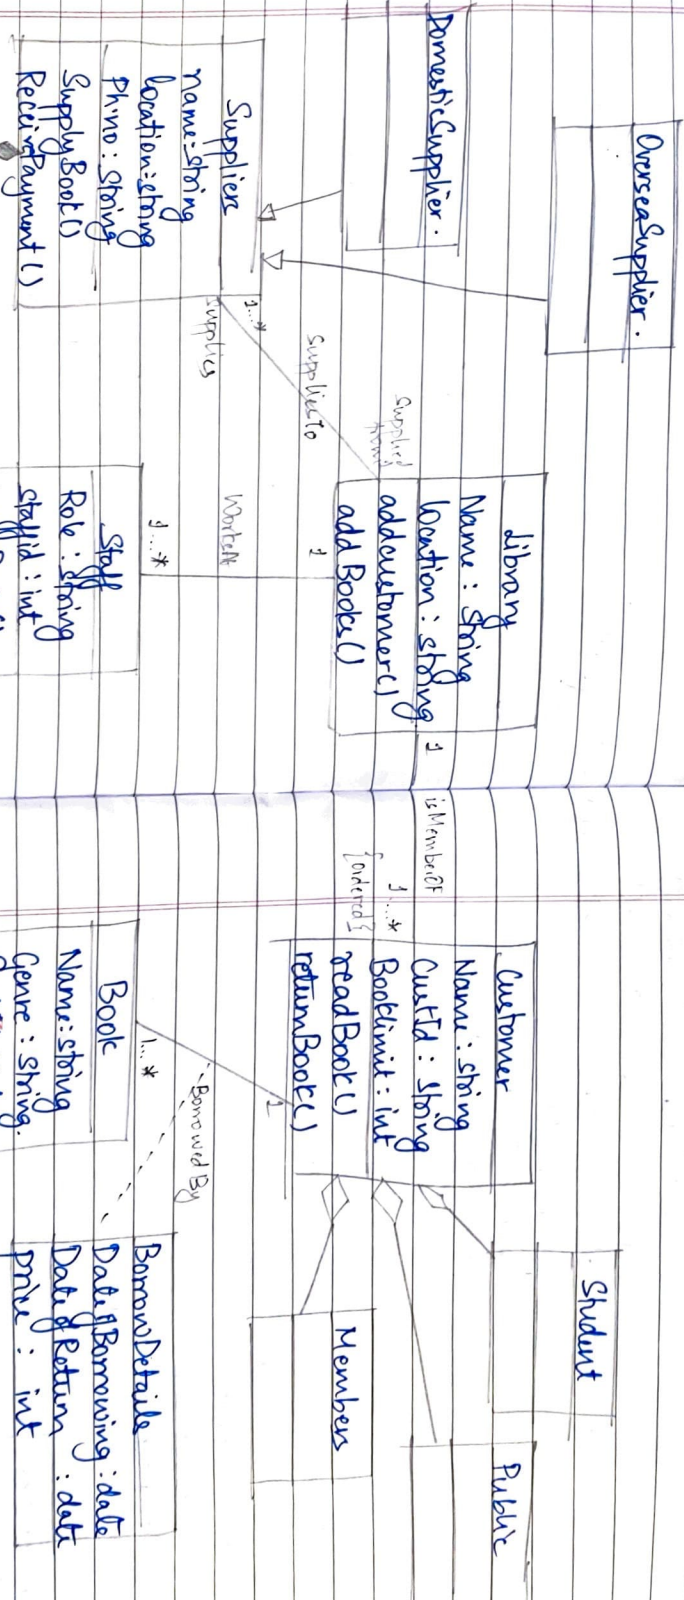 OverseaSupplier.
DomesticSupplier.
Suppliers
name:string
location:string
Phno: string
SupplyBook()
1...*
Supplies
SuppliesTo
Supplied
from
Library
Name: string
location: string
addcustomer()
add Books()
1
WorksAt
1...*
Staff
Role: string
staffid: int
1
isMemberOf
1...*
{ordered}
Customer
Name: string
CustId: string
Booklimit: int
readBook()
returnBook()
1
BorrowedBy
1...*
Book
Name: string
Genre: string.
Student
Public
Members
BorrowDetails
DateofBorrowing: date
DateofReturn: date
price: int